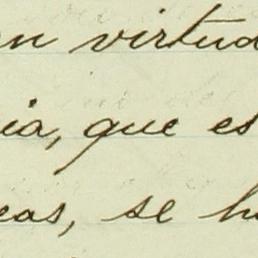 en virtud
ia, que es
eas, se h